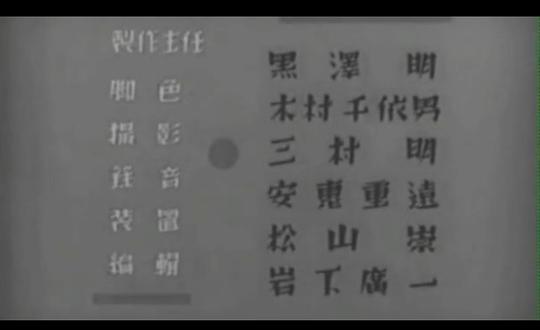 製作主任 黒澤明
脚色 木村千依男
撮影 三村明
録音 安恵重遠
装置 松山崇
編輯 岩下廣一